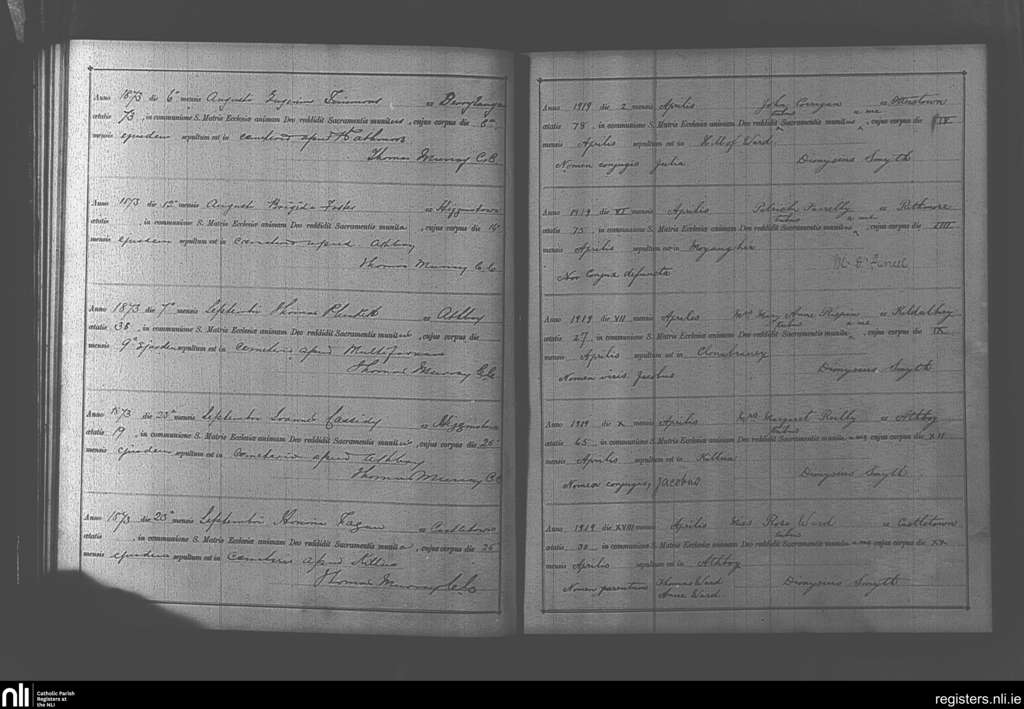 Anno 1873 die 6º mensis Augusti Eugenius Timmons ex Derrylangan
ætatis 73, in communione S. Matris Ecclesiæ animam Deo reddidit Sacramentis munitus, cujus corpus die 8º
mensis ejusdem sepultum est in cemeterio apud Rathmore
Thomas Murray C.C.
Anno 1873 die 12º mensis August Brigida Foster ex Higginstown
ætatis , in communione S. Matris Ecclesiæ animam Deo reddidit Sacramentis munita, cujus corpus die 14º
mensis ejusdem sepultum est in cemeterio apud Athboy
Thomas Murray C.C.
Anno 1873 die 7º mensis Septembris Thomas Plunkett ex Athboy
ætatis 36, in communione S. Matris Ecclesiæ animam Deo reddidit Sacramentis munitus, cujus corpus die
mensis 9º Ejusdem sepultum est in cemeterio apud
Thomas Murray C.C.
Anno 1873 die 23º mensis Septembris Cassidy ex Higginstown
ætatis 19, in communione S. Matris Ecclesiæ animam Deo reddidit Sacramentis munit , cujus corpus die 25º
mensis ejusdem sepultum est in cemeterio apud Athboy
Thomas Murray C.C.
Anno 1873 die 23º mensis Septembris Honora Fagan ex Castletown
ætatis , in communione S. Matris Ecclesiæ animam Deo reddidit Sacramentis munita, cujus corpus die 25º
mensis ejusdem sepultum est in cemeterio apud Killua
Thomas Murray C.C.
Anno 1919 die 2 mensis Aprilis John Corrigan ex Otterstown
ætatis 78, in communione S. Matris Ecclesiæ animam Deo reddidit tribus Sacramentis munitus a me, cujus corpus die IV
mensis Aprilis sepultum est in Hill of Ward.
Nomen conjugis Julia Dionysius Smyth
Anno 1919 die VI mensis Aprilis Patrick Farrelly ex Rathmore
ætatis 75, in communione S. Matris Ecclesiæ animam Deo reddidit tribus Sacramentis munitus a me, cujus corpus die VIII
mensis Aprilis sepultum est in Moyangher
Nor Conjux defuncta
Anno 1919 die VII mensis Aprilis Mrs Mary Anne Rispin ex Kildalkey
ætatis 27, in communione S. Matris Ecclesiæ animam Deo reddidit tribus Sacramentis munita a me, cujus corpus die IX
mensis Aprilis sepultum est in Clonabreaney
Nomen viris Jacobus Dionysius Smyth
Anno 1919 die X mensis Aprilis Mrs Margaret Reilly ex Athboy
ætatis 65, in communione S. Matris Ecclesiæ animam Deo reddidit tribus Sacramentis munita a me, cujus corpus die XII
mensis Aprilis sepultum est in Killua
Nomen conjugis Jacobus Dionysius Smyth
Anno 1919 die XVIII mensis Aprilis Miss Rose Ward ex Castletown
ætatis 30, in communione S. Matris Ecclesiæ animam Deo reddidit tribus Sacramentis munita a me, cujus corpus die XX
mensis Aprilis sepultum est in Athboy
Nomen parentium Thomas Ward Dionysius Smyth
Anne Ward.
nli Catholic Parish
Registers at
the NLI
registers.nli.ie